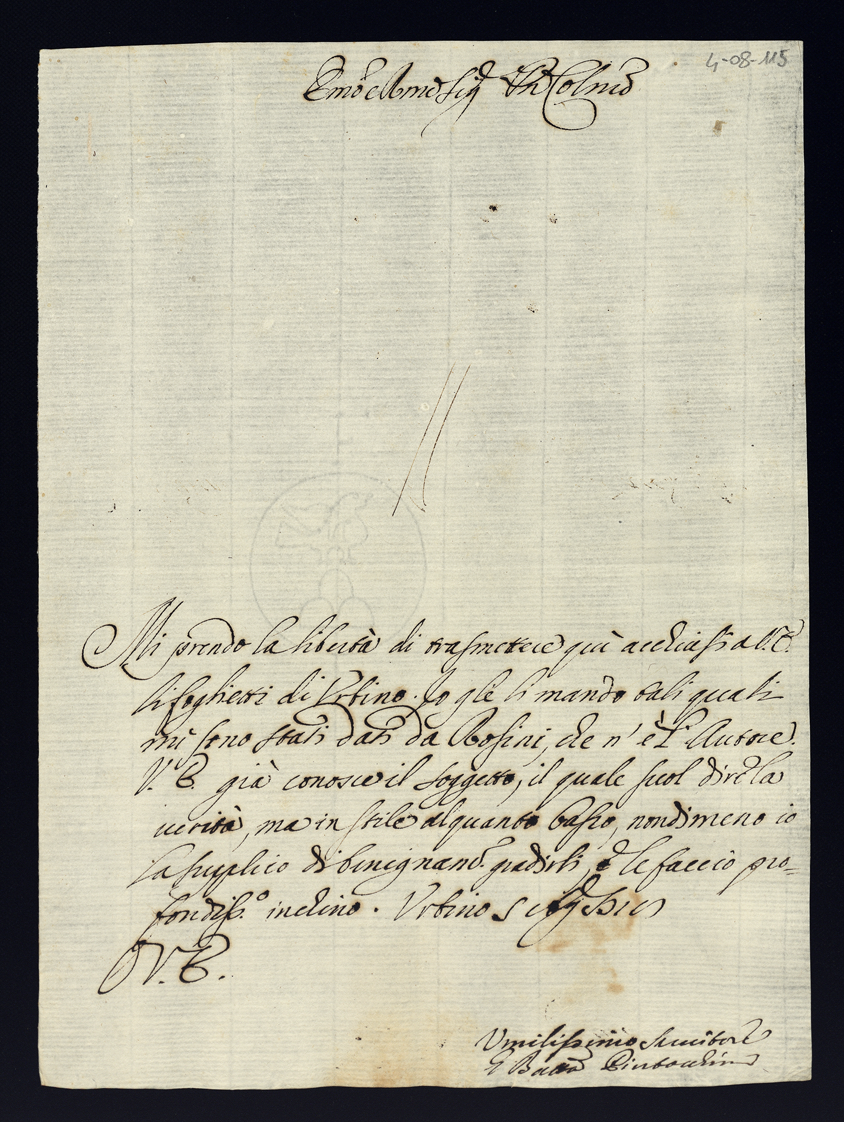 4-08-115
Emo e Rmo Sig.
Mi prendo la libertà di trasmettere quì acchiusi a V.E.
li foghetti di Urbino. Io gle li mando tali quali
mi sono stati dati da Rosini, che n' è l'Autore.
V.E. già conosce il soggetto, il quale suol dire la
verità, ma in stile alquanto basso, nondimeno io
la supplico di benignam.e gradirli, e le faccio pro=
fondiss.o inchino. Urbino 5
V.E.
Umilissimo Servitore